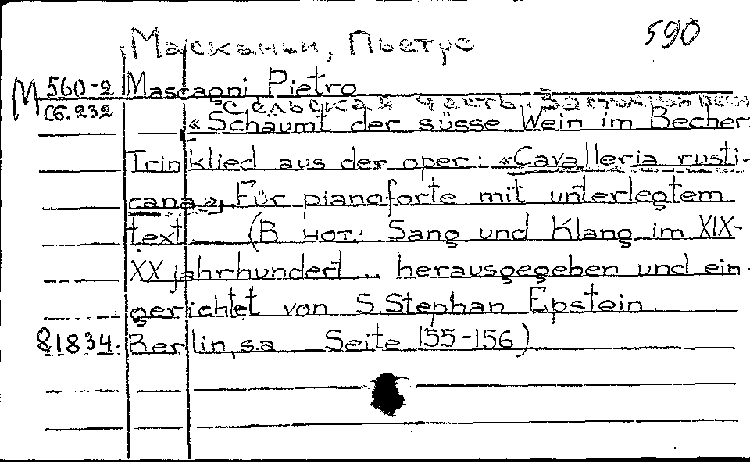 Масканьи, Пьетро
590
М 560-2 Mascagni Pietro
Сб. 232 "Сельская честь.
«Schäumt der süsse Wein im Becher
Trinklied aus der oper: «Cavalleria rusti-
cana», Für pianoforte mit unterlegtem
text (В нот: Sang und Klang im XIX-
XX jahrhundert .. herausgegeben und ein-
gerichtet von S. Stephan Epstein
81834. Berlin, s.a Seite 155-156)